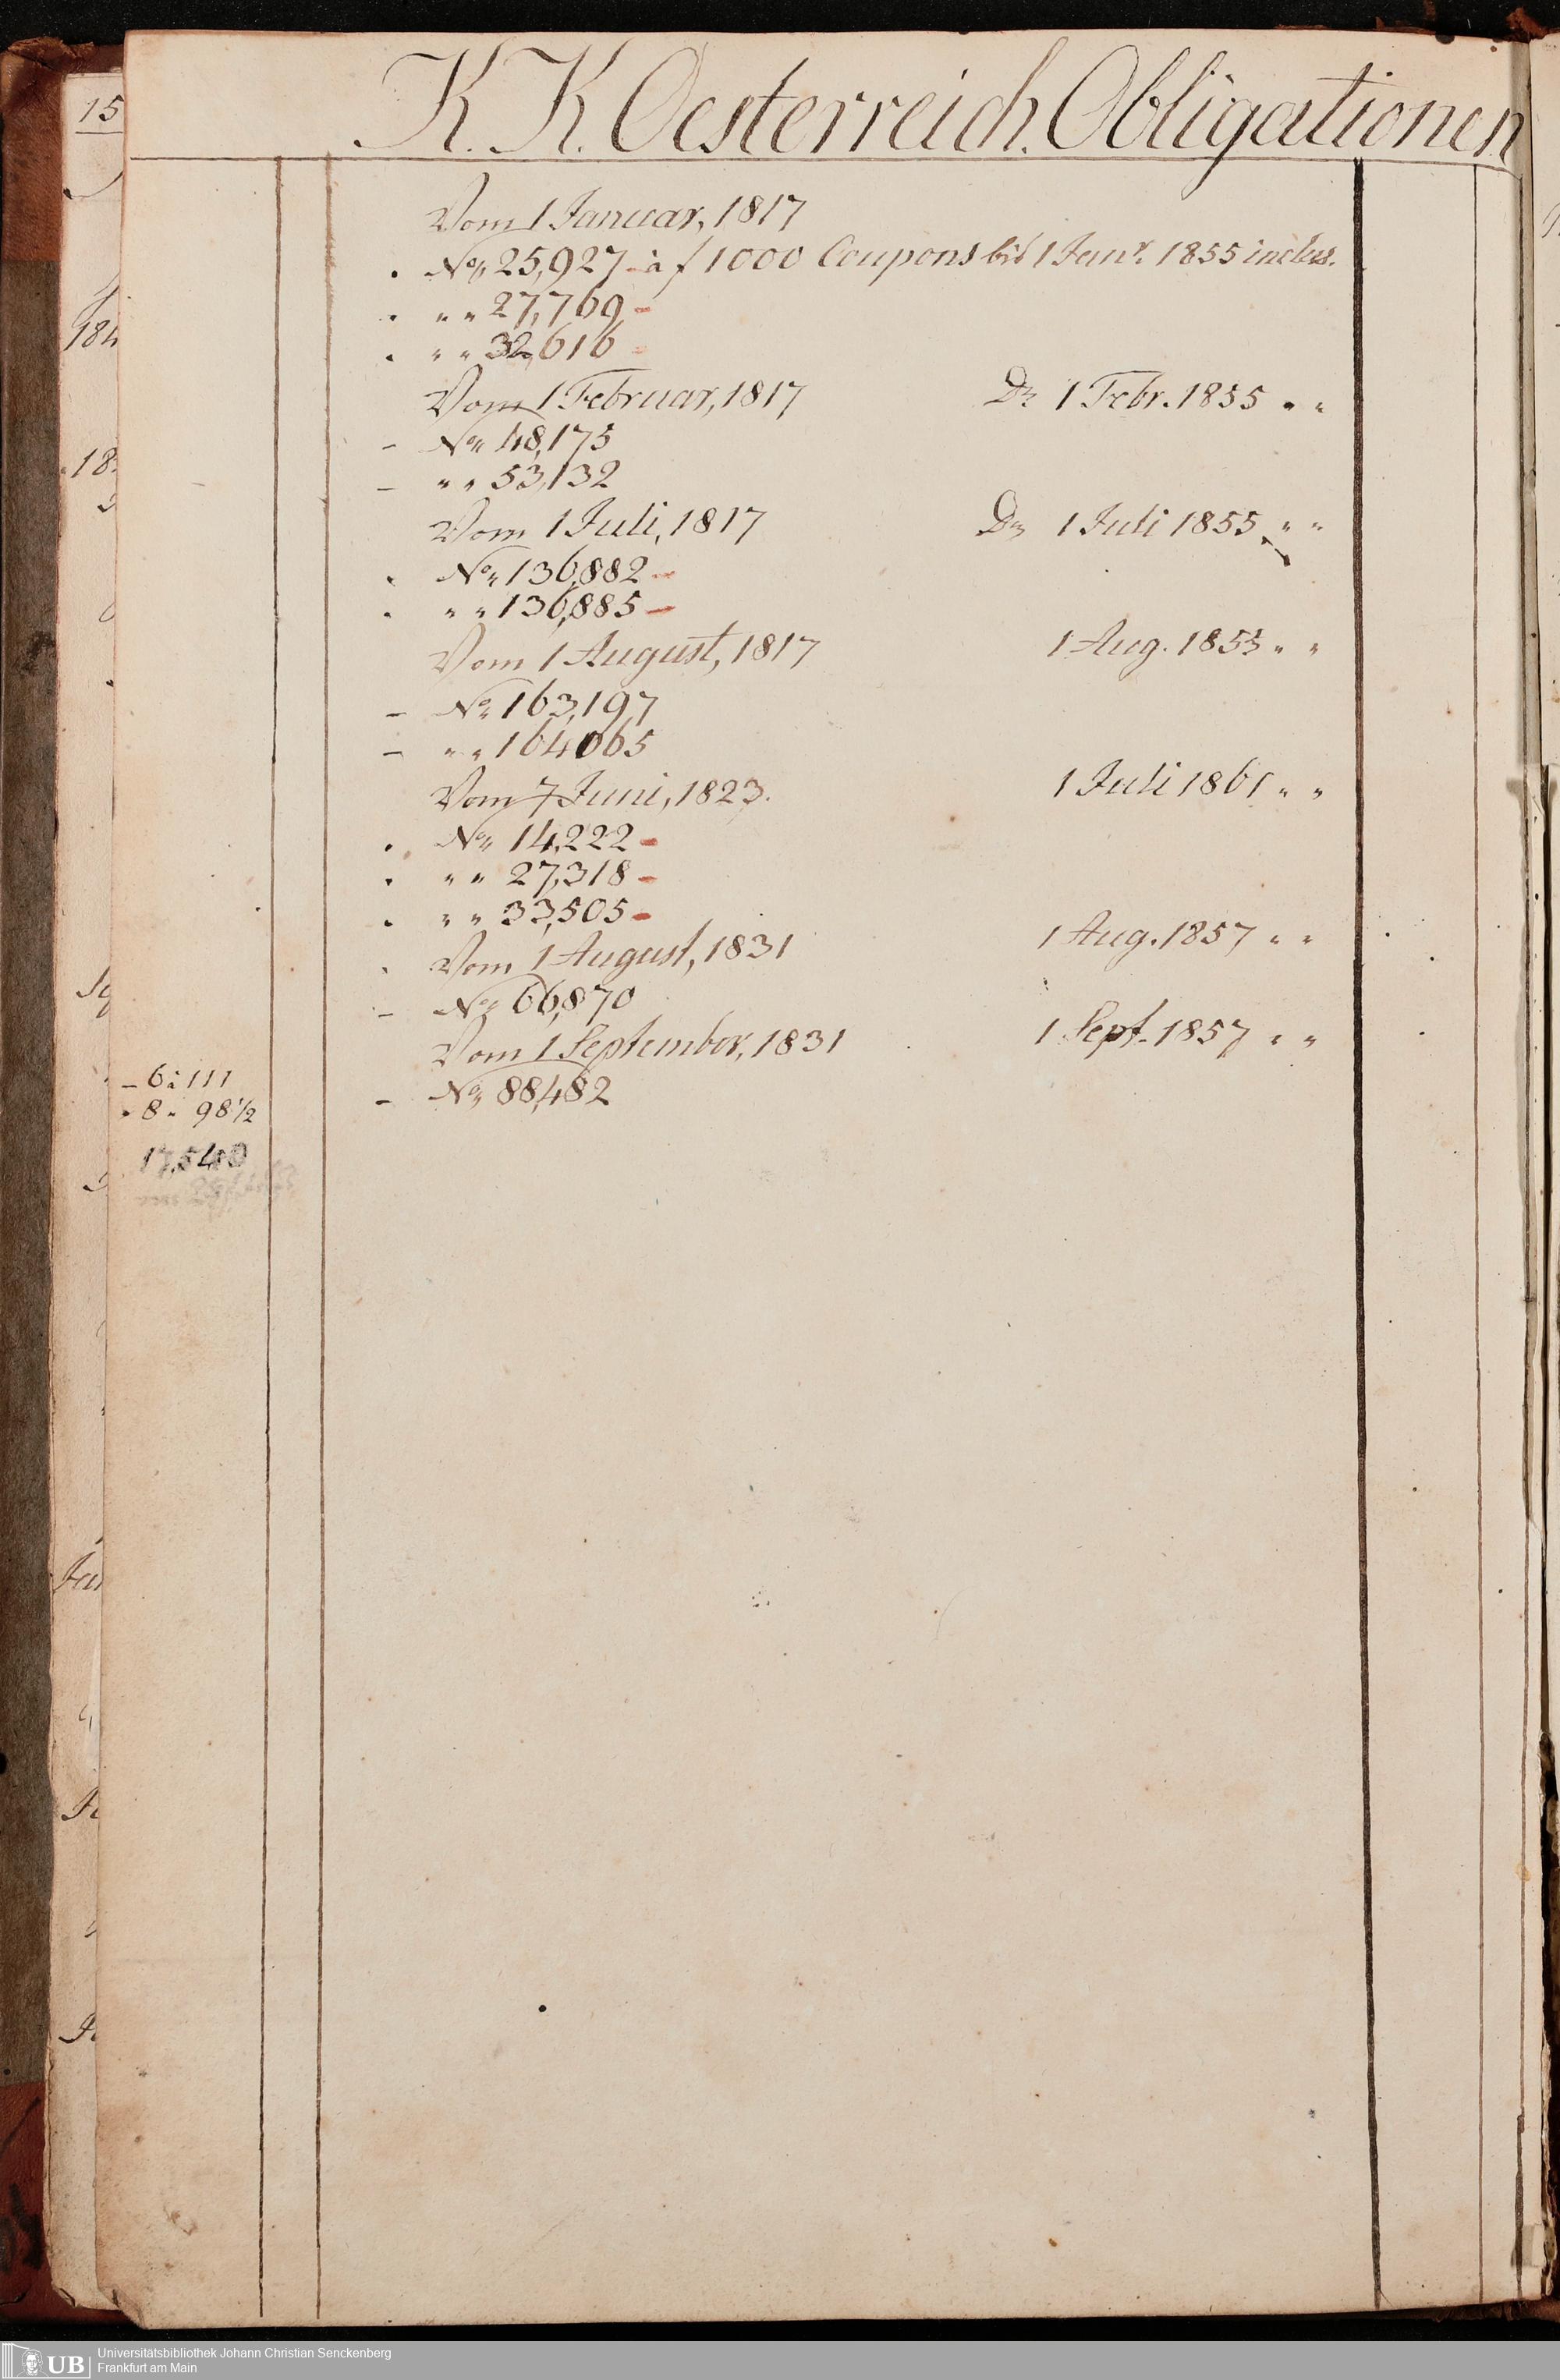 15
K. K. Oesterreich. Obligationen
Vom 1 Januar, 1817
. No„ 25,927 - à f 1000 Coupons bis 1 Janr. 1855 inclus.
. „ „ 27,769 -
. „ „ 32,616 -
Vom 1 Februar, 1817 Do 1 Febr. 1855 „ „
- No„ 48,175
- „ „ 53,132
Vom 1 Juli, 1817 Do 1 Juli 1855 „ „
. No„ 136,882 -
. „ „ 136,885 -
Vom 1 August, 1817 1 Aug. 1855 „ „
- No„ 163,197
- „ „ 164065
Vom 7 Juni, 1823. 1 Juli 1861 „ „
. No„ 14,222 -
. „ „ 27,318 -
. „ „ 33,505 -
. Vom 1 August, 1831 1 Aug. 1857 „ „
- No„ 66,870
Vom 1 September, 1831 1 Sept. 1857 „ „
- No„ 88,482
- 6 à 111
. 8 „ 98 1/2
UB
Universitätsbibliothek Johann Christian Senckenberg
Frankfurt am Main